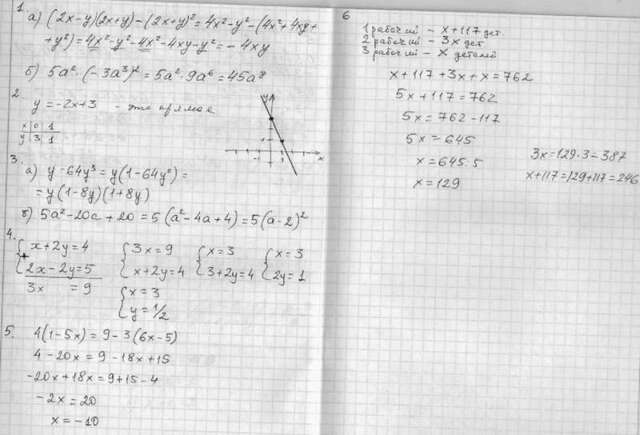 1. а) (2x-y)(2x+y)-(2x+y)² = 4x²-y²-(4x²+4xy+
+y²) = 4x²-y²-4x²-4xy-y² = -4xy
б) 5a²·(-3a³)² = 5a²·9a⁶ = 45a⁸
2.
y = -2x+3 - это прямая
x 0 1
y 3 1
y
1
-1
x
3.
а) y-64y³ = y(1-64y²) =
= y(1-8y)(1+8y)
б) 5a²-20a+20 = 5(a²-4a+4) = 5(a-2)²
4.
{ x+2y=4
+
2x-2y=5
3x = 9
{ 3x=9
x+2y=4
{ x=3
3+2y=4
{ x=3
2y=1
{ x=3
y=1/2
5.
4(1-5x) = 9-3(6x-5)
4-20x = 9-18x+15
-20x+18x = 9+15-4
-2x = 20
x = -10
6
1 рабочий - x+117 дет.
2 рабочий - 3x дет
3 рабочий - x деталей
x+117+3x+x = 762
5x+117 = 762
5x = 762-117
5x = 645
x = 645:5
x = 129
3x = 129·3 = 387
x+117 = 129+117 = 246